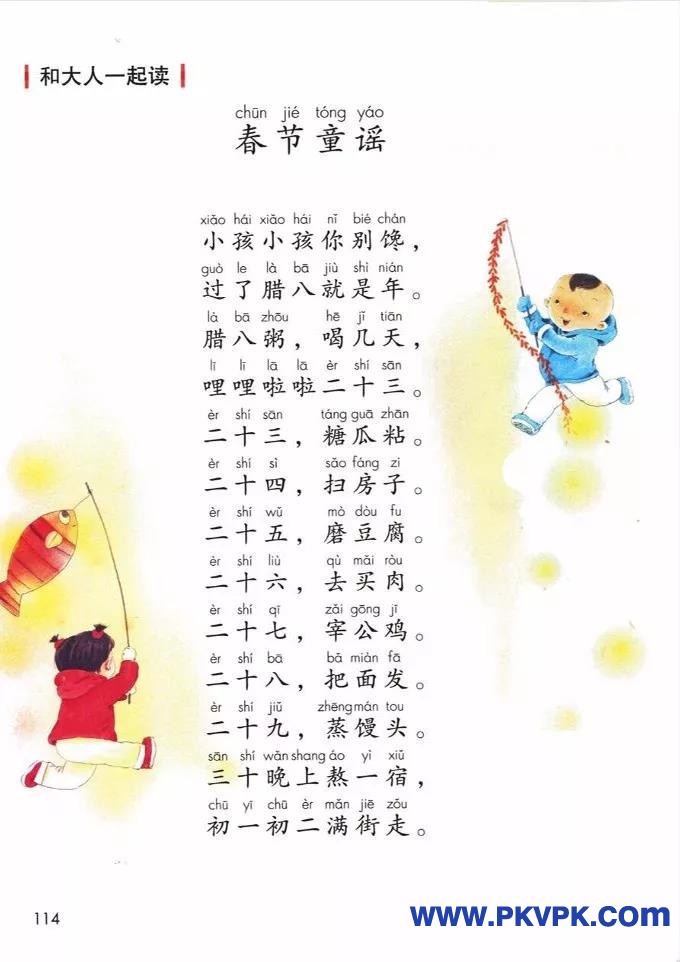 和大人一起读
chūn jié tóng yáo
春节童谣
xiǎo hái xiǎo hái nǐ bié chán
小孩小孩你别馋，
guò le là bā jiù shì nián
过了腊八就是年。
là bā zhōu hē jǐ tiān
腊八粥，喝几天，
lī lī lā lā èr shí sān
哩哩啦啦二十三。
èr shí sān táng guā zhān
二十三，糖瓜粘。
èr shí sì sǎo fáng zi
二十四，扫房子。
èr shí wǔ mò dòu fu
二十五，磨豆腐。
èr shí liù qù mǎi ròu
二十六，去买肉。
èr shí qī zǎi gōng jī
二十七，宰公鸡。
èr shí bā bǎ miàn fā
二十八，把面发。
èr shí jiǔ zhēng mán tou
二十九，蒸馒头。
sān shí wǎn shang áo yì xiǔ
三十晚上熬一宿，
chū yī chū èr mǎn jiē zǒu
初一初二满街走。
114
www.PKVPK.com